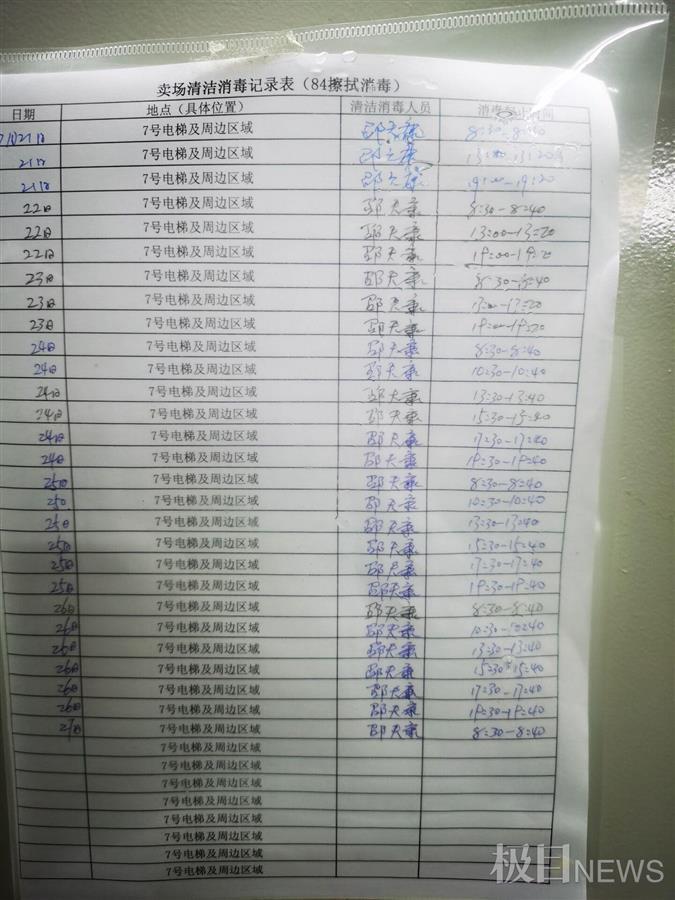 卖场清洁消毒记录表（84擦拭消毒）
日期 地点（具体位置） 清洁消毒人员 消毒起止时间
21日 7号电梯及周边区域 8:30-8:40
21日 7号电梯及周边区域 13:00-13:20
21日 7号电梯及周边区域 19:00-19:20
22日 7号电梯及周边区域 8:30-8:40
22日 7号电梯及周边区域 13:00-13:20
22日 7号电梯及周边区域 19:00-19:20
23日 7号电梯及周边区域 8:30-8:40
23日 7号电梯及周边区域 13:00-13:20
23日 7号电梯及周边区域 19:00-19:20
24日 7号电梯及周边区域 8:30-8:40
24日 7号电梯及周边区域 10:30-10:40
24日 7号电梯及周边区域 13:30-13:40
24日 7号电梯及周边区域 15:30-15:40
24日 7号电梯及周边区域 17:30-17:40
24日 7号电梯及周边区域 19:30-19:40
25日 7号电梯及周边区域 8:30-8:40
25日 7号电梯及周边区域 10:30-10:40
25日 7号电梯及周边区域 13:30-13:40
25日 7号电梯及周边区域 15:30-15:40
25日 7号电梯及周边区域 17:30-17:40
25日 7号电梯及周边区域 19:30-19:40
26日 7号电梯及周边区域 8:30-8:40
26日 7号电梯及周边区域 10:30-10:40
26日 7号电梯及周边区域 13:30-13:40
26日 7号电梯及周边区域 15:30-15:40
26日 7号电梯及周边区域 17:30-17:40
26日 7号电梯及周边区域 19:30-19:40
27日 7号电梯及周边区域 8:30-8:40
7号电梯及周边区域
7号电梯及周边区域
7号电梯及周边区域
7号电梯及周边区域
7号电梯及周边区域
7号电梯及周边区域
7号电梯及周边区域
极目NEWS